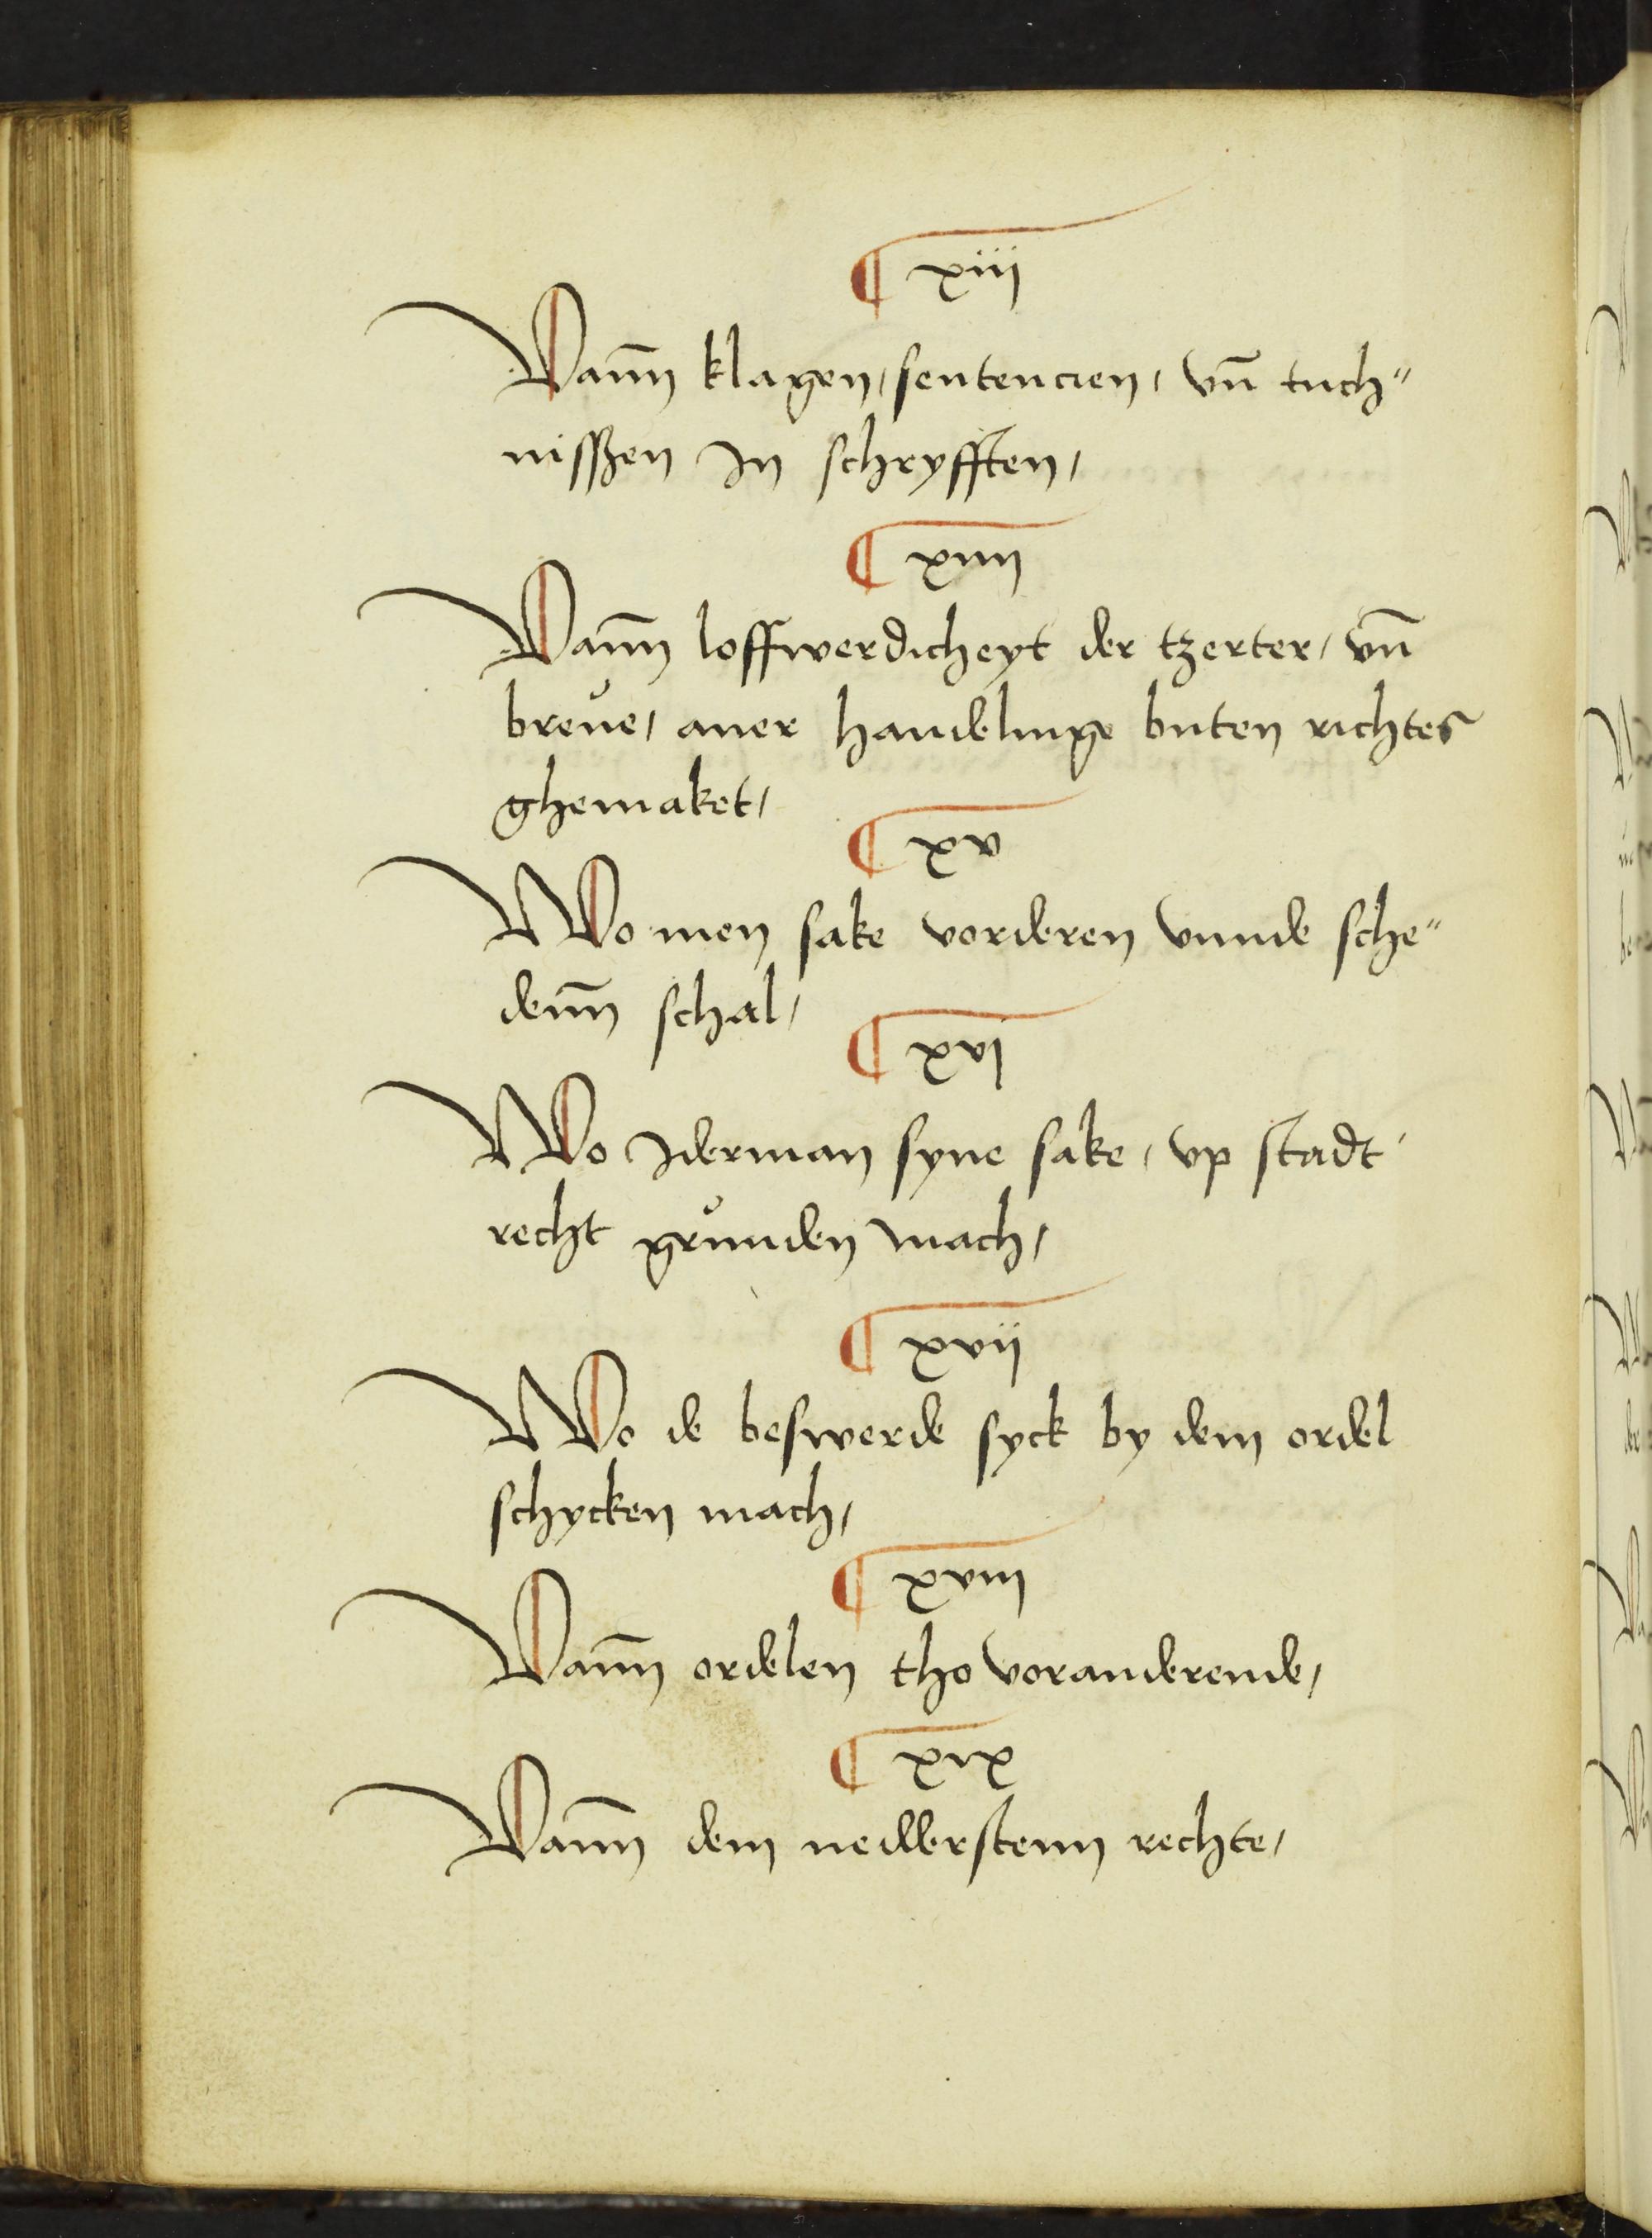 ¶ xiij
Vann̄ klagen, sentencien, vn̄ tuch„
nisszen In schryfften,
¶ xiiij
Vann̄ loffwerdicheyt der tzerter, vn̄
breue, auer handelinge buten richtes
ghemaket,
¶ xv
Wo men sake vorderen vnnde sche„
denn̄ schal,
¶ xvj
Wo Iderman syne sake, vp stadt
recht grŭnden mach,
¶ xvij
Wo de beswerde syck by dem ordel
schycken mach,
¶ xviij
Vann̄ ordelen tho voranderende,
¶ xix
Vann̄ dem nedderstenn rechte,